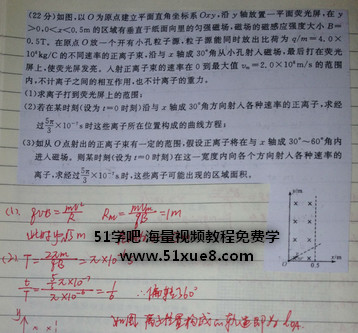 (22分)如图,以O为原点建立平面直角坐标系Oxy,沿y轴放置一平面荧光屏,在y
>0,0<x<0.5m的区域有垂直于纸面向里的匀强磁场,磁场的磁感应强度大小B=
0.5T。在原点O放一个开有小孔粒子源,粒子源能同时放出比荷为q/m=4.0×
10⁶kg/C的不同速率的正离子束,沿与x轴成30°角从小孔射入磁场,最后打在荧光
屏上,使荧光屏发亮。入射正离子束的速率在0到最大值vₘ=2.0×10⁶m/s的范围
内,不计离子之间的相互作用,也不计离子的重力。
(1)求离子打到荧光屏上的范围;
(2)若在某时刻(设为t=0时刻)沿与x轴成30°角方向射入各种速率的正离子,求经
过5π/3×10⁻⁷s时这些离子所在位置构成的曲线方程;
(3)如从O点射出的正离子束有一定的范围,假设正离子将在与x轴成30°~60°角内
进入磁场,则某时刻(设为t=0时刻)在这一宽度内向各个方向射入各种速率的
离子,求经过5π/3×10⁻⁷s时,这些离子可能出现的区域面积。
(1). qvB=mv²/R Rₘ=mvₘ/qB=1m
51学吧|海量视频教程免费学
www.51xue8.com
(2) T=2πm/qB=π×10
t/T = =1/6 ∴偏转60°
y/m
x/m
O
0.5